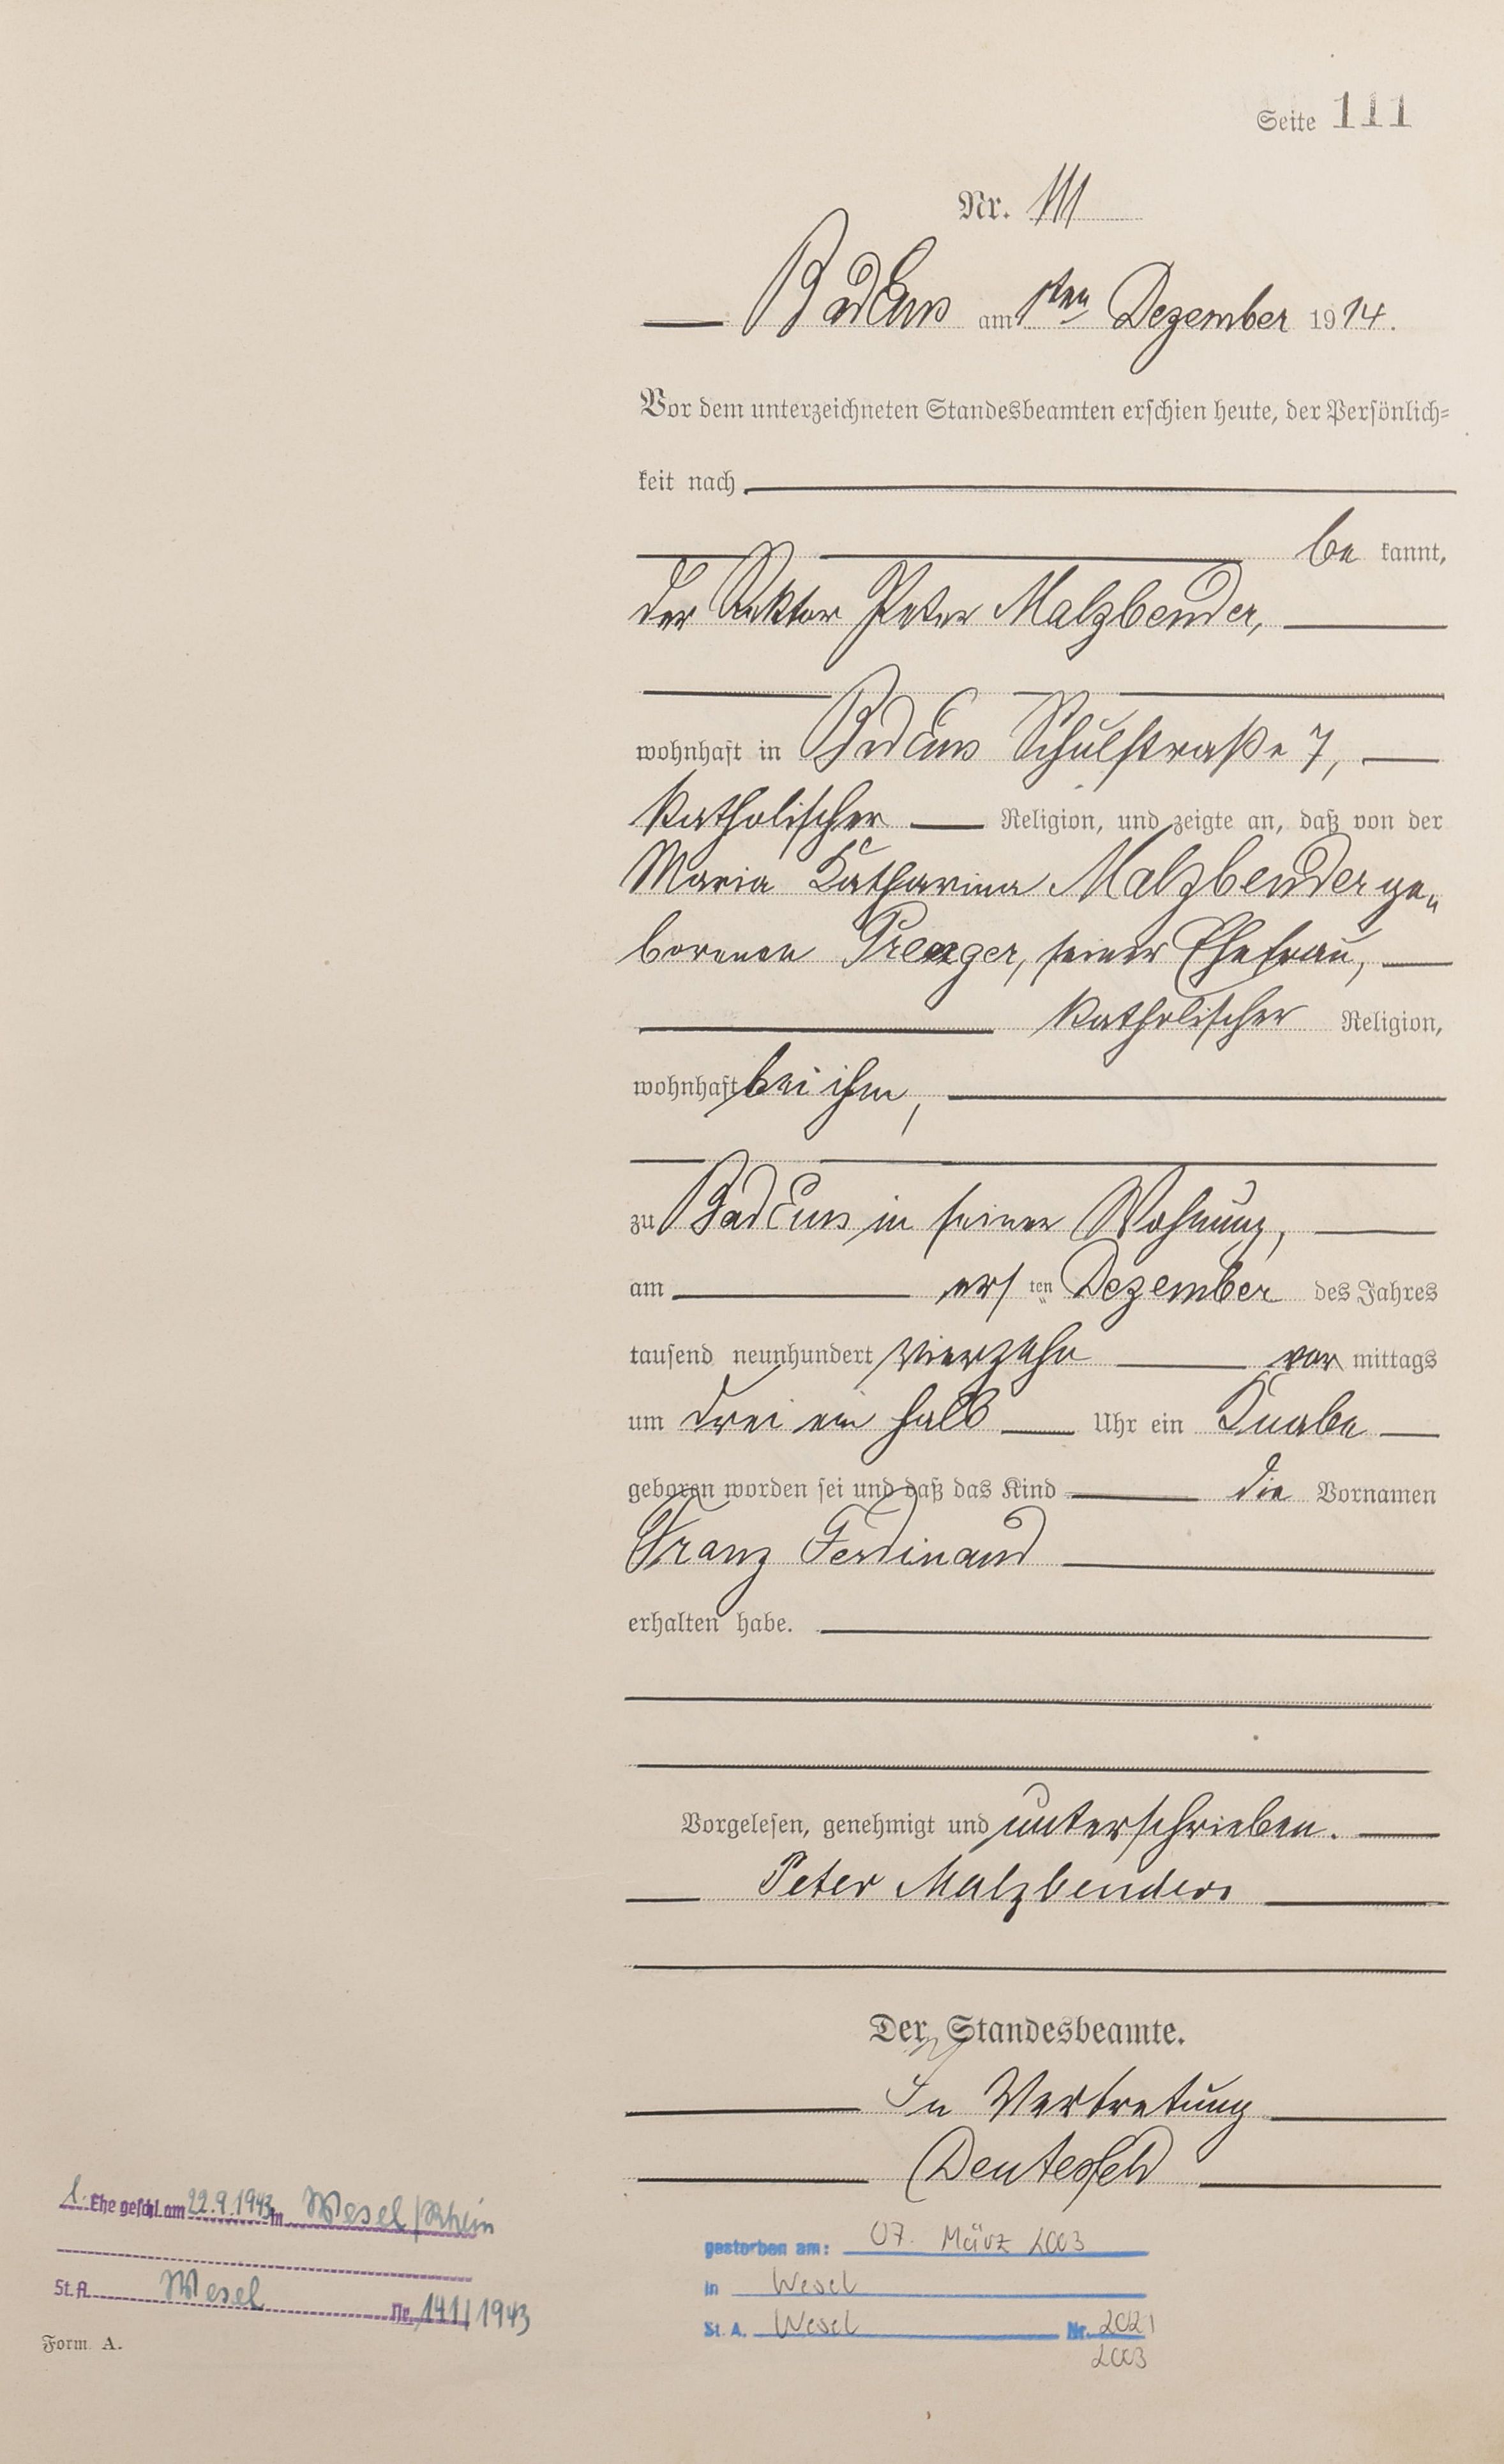 Seite 111
Nr. 111
Bad Ems am 1ten Dezember 1914.
Vor dem unterzeichneten Standesbeamten erschien heute, der Persönlich-
keit nach
be kannt,
der Rektor Peter Malzbender,
wohnhaft in Bad Ems Schulstraße 7,
katholischer Religion, und zeigte an, daß von der
Maria Katharina Malzbender ge-
borenen Prenger, seiner Ehefrau,
katholischer Religion,
wohnhaft bei ihm,
zu Bad Ems in seiner Wohnung,
am ersten Dezember des Jahres
tausend neunhundert vierzehn vor mittags
um drei ein halb Uhr ein Knabe
geboren worden sei und daß das Kind die Vornamen
Franz Ferdinand
erhalten habe.
Vorgelesen, genehmigt und unterschrieben.
Peter Malzbender.
Der Standesbeamte.
In Vertretung
1. Ehe geschl. am 22.9.1943 in Wesel/Rhein
St. A. Wesel Nr. 141/1943
gestorben am: 07. März 2003
in Wesel
St. A. Wesel Nr.
2003
Form. A.